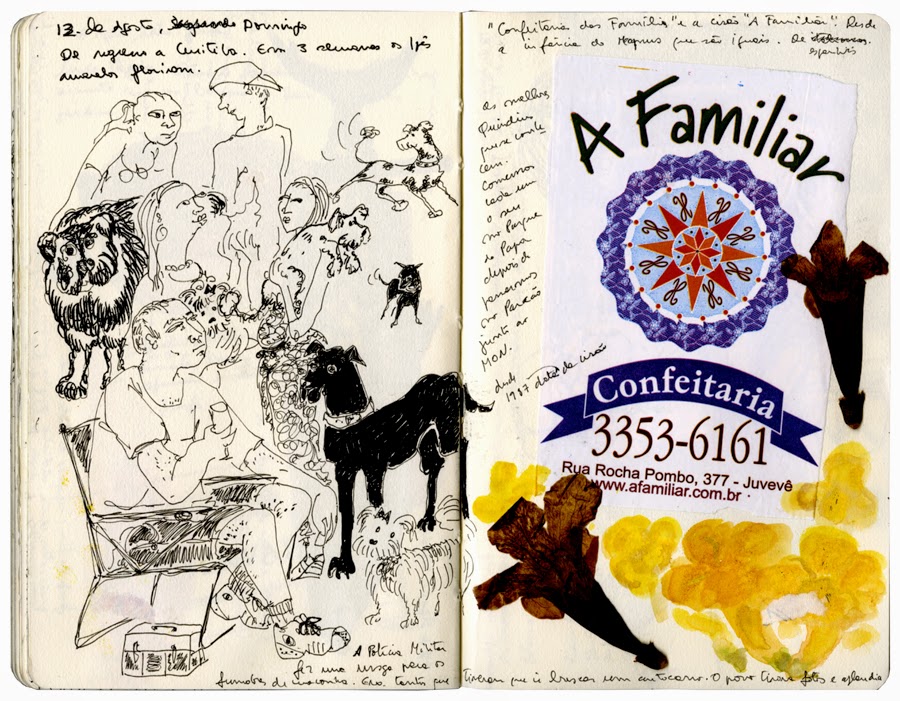 12. de Agosto, Domingo
De regresso a Curitiba. Em 3 semanas os Ipês
amarelos floriram.
"Confeitaria das Famílias" e a cisão "A Familiar". Desde
a infância do que são iguais. De
as melhores
que se conhe
cem.
Comemos
cada um
o seu
no Parque
do Papa
depois de
no
junto ao
MON.
desde
1987 data da cisão
A Familiar
Confeitaria
3353-6161
Rua Rocha Pombo, 377 - Juvevê
www.afamiliar.com.br
A Polícia Militar
fez uma rusga para os
fumadores de maconha. Eram tantos que tiveram que ir buscar um autocarro. O povo tirava fotos e aplaudia